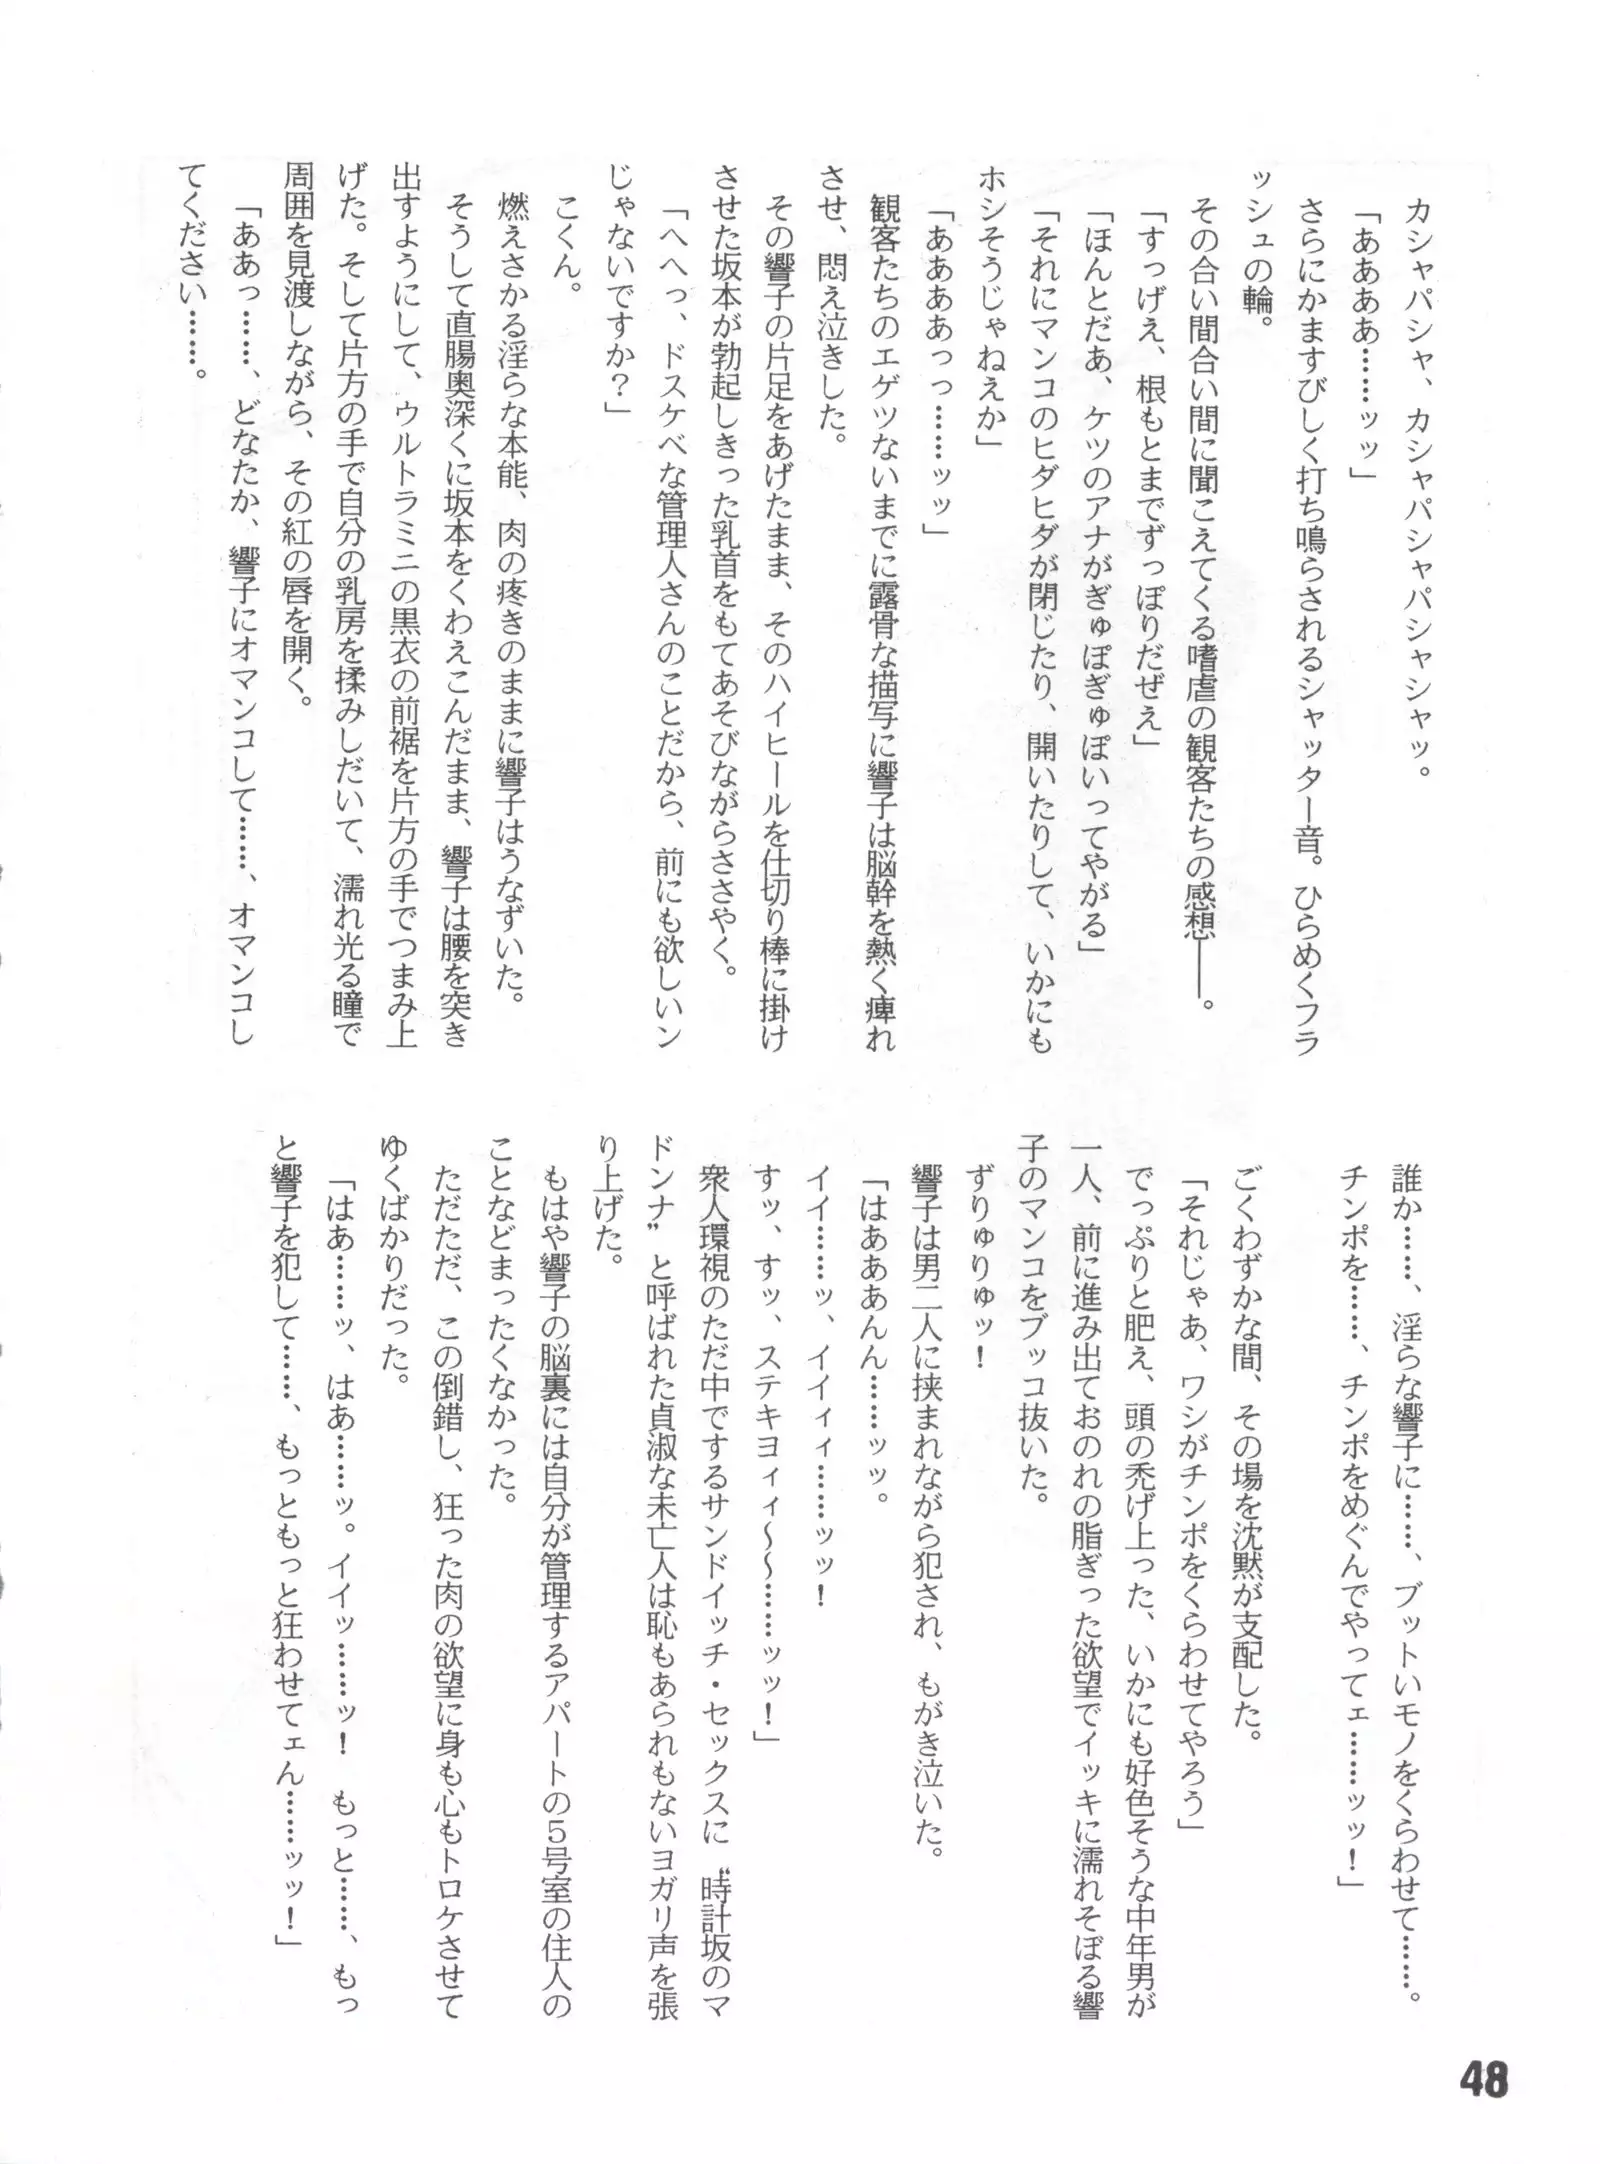 カシャパシャ、カシャパシャパシャシャッ。
「ああああ……ッッ」
さらにかますびしく打ち鳴らされるシャッター音。ひらめくフラ
ッシュの輪。
その合い間合い間に聞こえてくる嗜虐の観客たちの感想――。
「すっげえ、根もとまでずっぽりだぜえ」
「ほんとだあ、ケツのアナがぎゅぽぎゅぽいってやがる」
「それにマンコのヒダヒダが閉じたり、開いたりして、いかにも
ホシそうじゃねえか」
「ああああっっ……ッッ」
観客たちのエゲツないまでに露骨な描写に響子は脳幹を熱く痺れ
させ、悶え泣きした。
その響子の片足をあげたまま、そのハイヒールを仕切り棒に掛け
させた坂本が勃起しきった乳首をもてあそびながらささやく。
「へへっ、ドスケベな管理人さんのことだから、前にも欲しいン
じゃないですか？」
こくん。
燃えさかる淫らな本能、肉の疼きのままに響子はうなずいた。
そうして直腸奥深くに坂本をくわえこんだまま、響子は腰を突き
出すようにして、ウルトラミニの黒衣の前裾を片方の手でつまみ上
げた。そして片方の手で自分の乳房を揉みしだいて、濡れ光る瞳で
周囲を見渡しながら、その紅の唇を開く。
「ああっ……、どなたか、響子にオマンコして……、オマンコし
てください……。
誰か……、淫らな響子に……、ブットいモノをくらわせて……。
チンポを……、チンポをめぐんでやってェ……ッッ！」
ごくわずかな間、その場を沈黙が支配した。
「それじゃあ、ワシがチンポをくらわせてやろう」
でっぷりと肥え、頭の禿げ上った、いかにも好色そうな中年男が
一人、前に進み出ておのれの脂ぎった欲望でイッキに濡れそぼる響
子のマンコをブッコ抜いた。
ずりゅりゅッ！
響子は男二人に挟まれながら犯され、もがき泣いた。
「はあああんん……ッッ。
イイ……ッ、イイィィ……ッッ！
すッ、すッ、ステキヨィィ～～……ッッ！」
衆人環視のただ中でするサンドイッチ・セックスに〝時計坂のマ
ドンナ〟と呼ばれた貞淑な未亡人は恥もあられもないヨガリ声を張
り上げた。
もはや響子の脳裏には自分が管理するアパートの５号室の住人の
ことなどまったくなかった。
ただただ、この倒錯し、狂った肉の欲望に身も心もトロケさせて
ゆくばかりだった。
「はあ……ッ、はあ……ッ。イイッ……ッ！　もっと……、もっ
と響子を犯して……、もっともっと狂わせてェん……ッッ！」
48